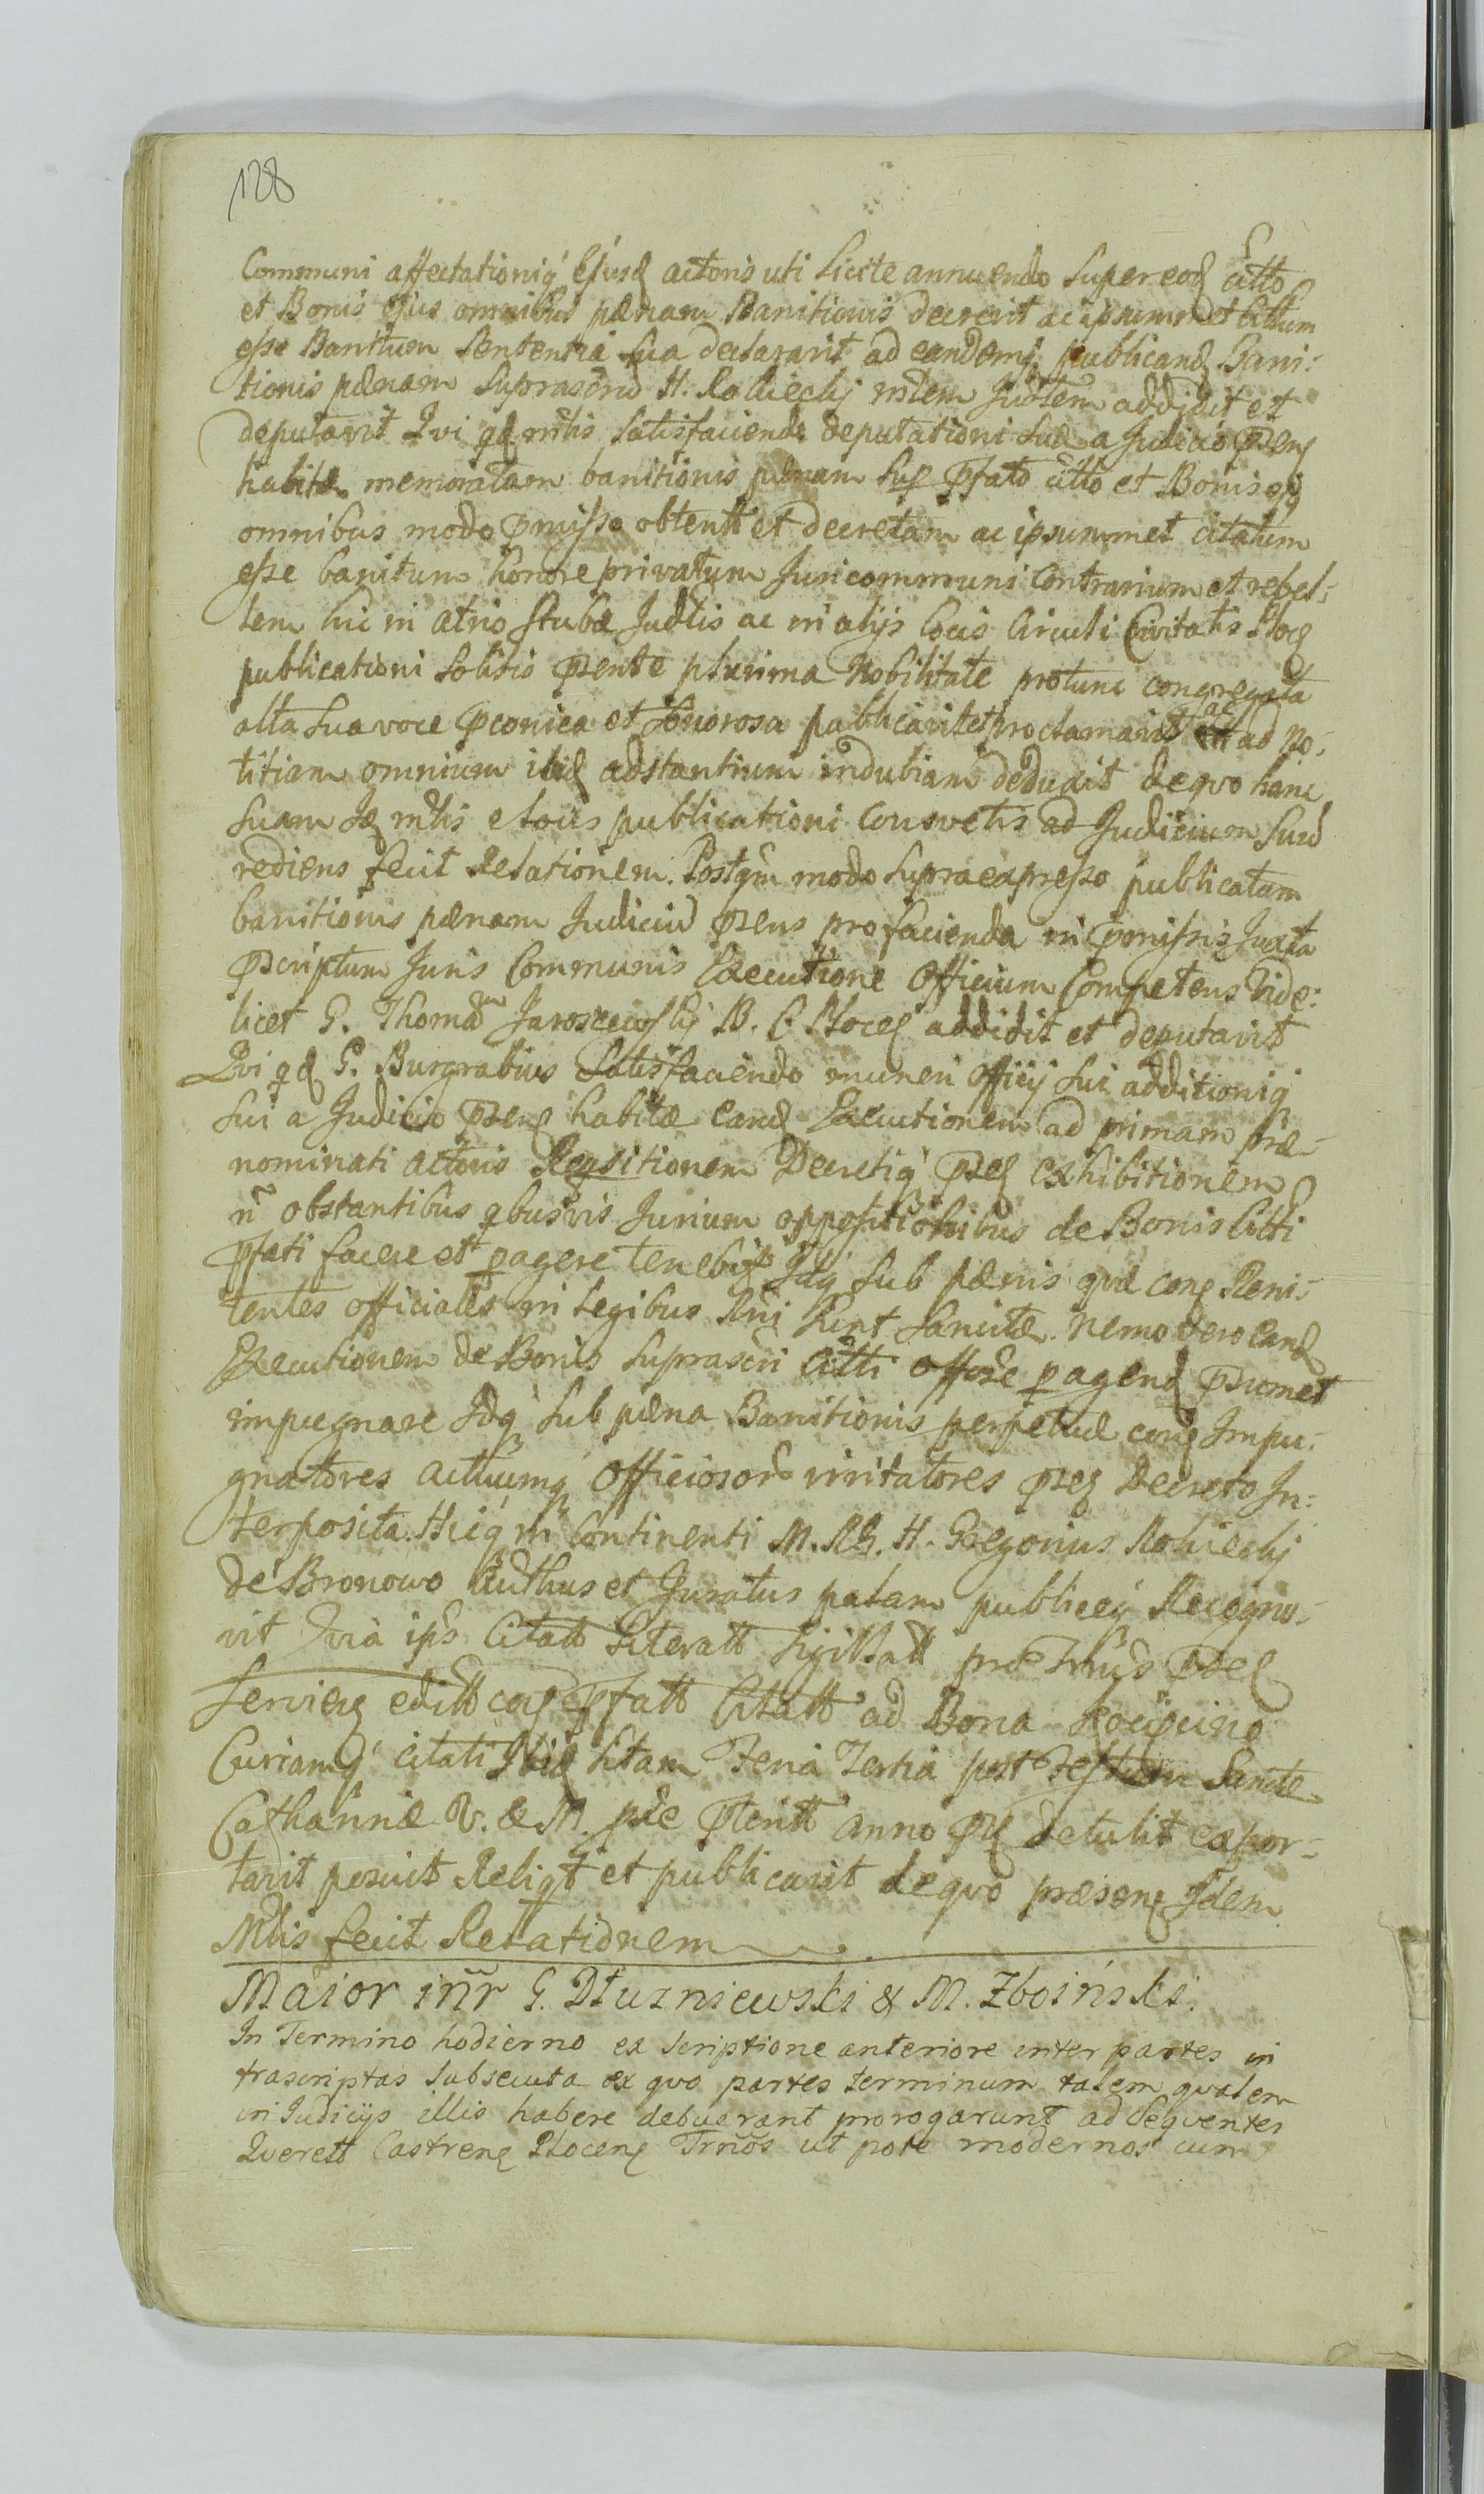 128
Communi affectationiq̃ Ejusd actoris uti licite annuendo super eod citto
et Bonis ejus omnibus pœnam Banitionis decrevit ac ipsummet Cittum
esse Banitum Sententia sua declaravit ad eandemq publicand Bani:
tionis pœnam suprascriū H. Rokieckj mlem Judtem addidit et
deputavit Qvi qd mtis Satisfaciendo deputationi suæ a Judicio pseñ
habitæ memoratam banitionis pœnam sup pfato citto et Bonis ejq
omnibus modo pmisso obtentt et decretam ac ipsummet citatum
esse banitum honore privatum Juri communi Contrarium et rebel:
lem hic in atrio Stubæ Judtis ac in alijs locis Circuli Civitatis Ploc
publicationi solitis psente plurima Nobilitate protunc congregata
alta sua voce pconica et sonorosa publicavit et proclamavit ac ad no:
titiam omnium ibid adstantium indubiam deduxit de qvo hanc
suam Id mtis e locis publicationi consvetis ad Judicium suū
rediens fecit Relationem. Postqm modo supraexpresso publicatam
banitionis pœnam Judiciū psens pro facienda in pmissis Juxta
pscriptum Juris Communis Executione Officium Competens Vide:
licet G. Thomam Jaroszewskj B. C. Ploceñ addidit et deputavit
Qvi qd G. Burgrabius Satisfaciendo muneri officij sui additioniq
sui a Judicio pseñ habitæ eand Executionem ad primam præ-
nominati actoris Reqvisitionem Decretiq pseñ exhibitionem
ñ obstantibus qbusvis Jurium oppositionibus de Bonis Citti
pfati facere et pagere tenebit Idq sub pœnis qvæ coñ Reni:
tentes officiales in legibus Rni sunt sancitæ. Nemo vero eand
Executionem de Bonis suprascri Citti offose pagend psumet
impugnare Idq sub pœna Banitionis perpetuæ coñ Impu:
gnatores actuumq Officiosorū irritatores pseñ Decreto In:
terposita. Hicq in Continenti M. RG. H. Gregorius Rokieckj
de Bronowo Authus et Juratus palam publiceq Recogno-
vit Qvia ips Citatt Literatt Sigillatt præ Trnis pseñ
Servieñ editt coñ pfatt Citatt ad Bona
Curiamq Citati Ibid sitam Feria Tertia post Festum Sanctæ
Catharinæ V. & M. pxe pterit anno pñ detulit expor-
tavit posuit Reliqt et publicavit de qvo præseñ Idem
Mtis fecit Relationem
Maior inr̃ G. Dłuzniewski & M. Zboiński.
In Termino hodierno ex scriptione anteriore inter partes in
frascriptas subsecuta ex qvo partes terminum talem qvalem
in Iudicijs illis habere debuerant prorogarunt ad seqventes
Qverett Castreñ Ploceñ Trños ut pote modernos cum